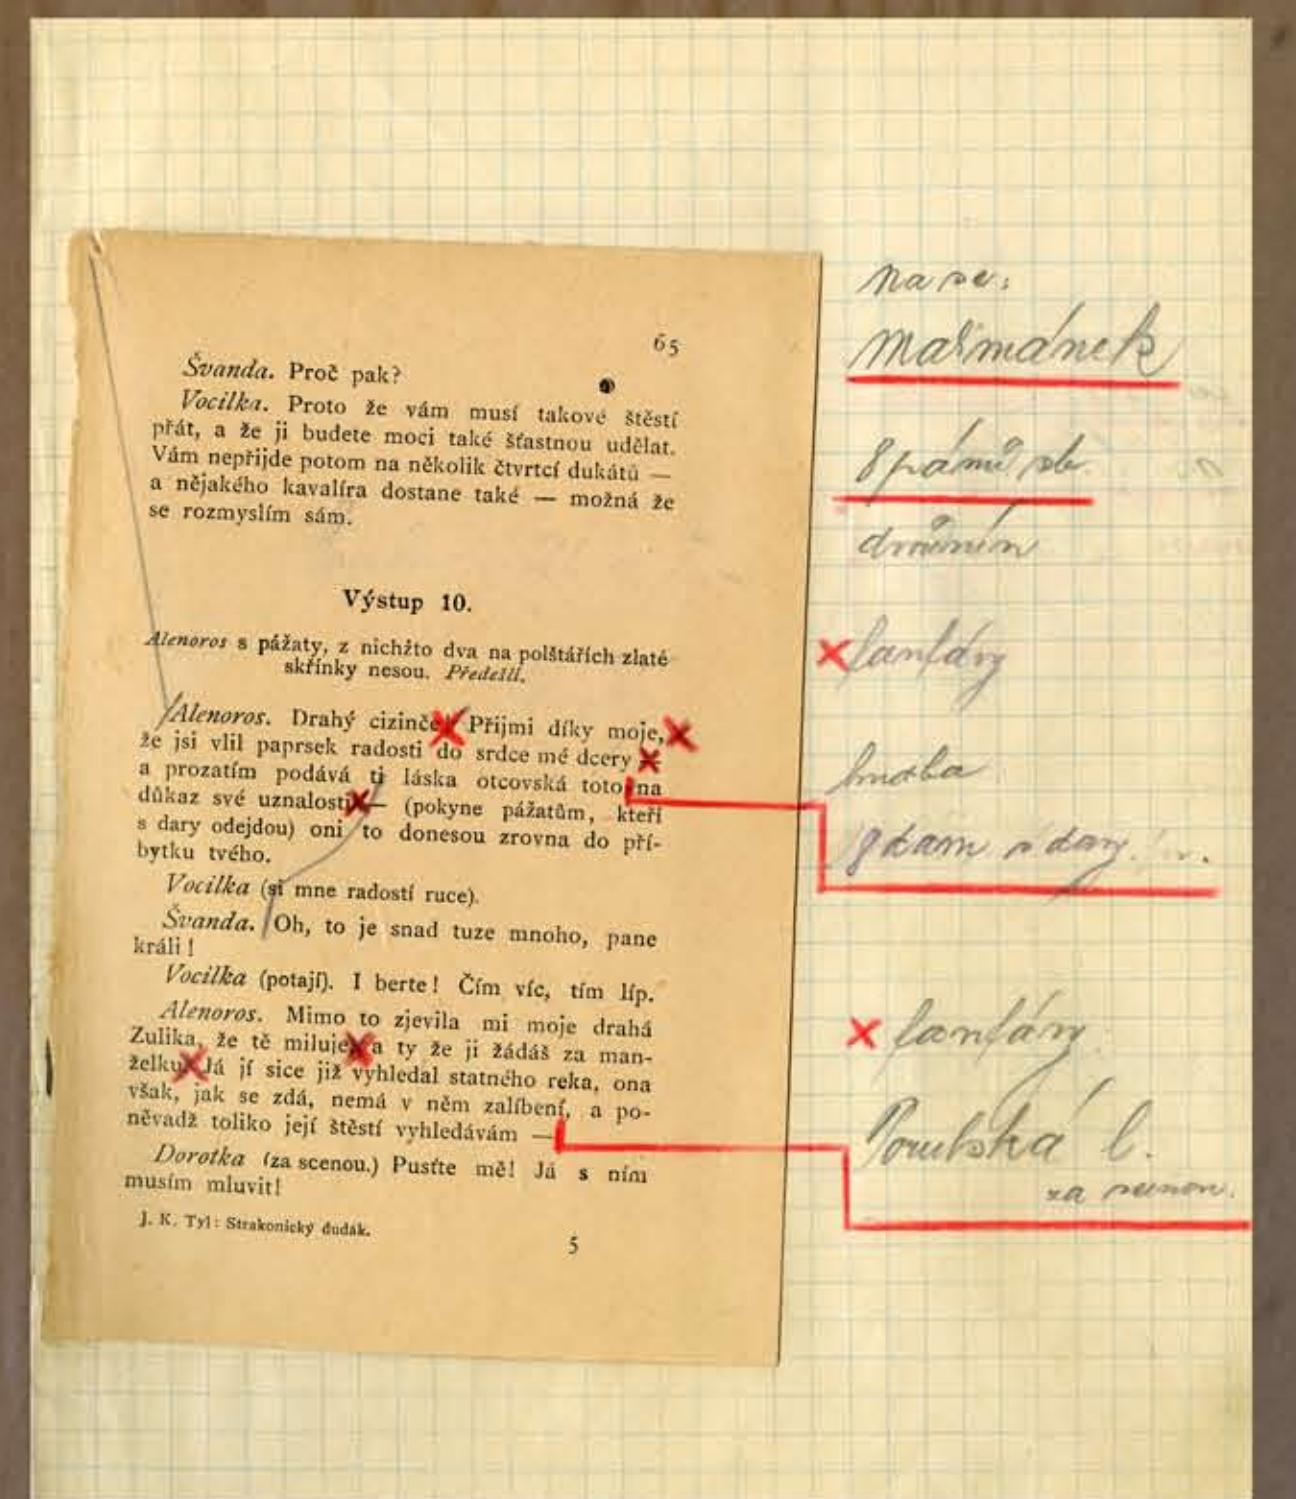 65
Švanda. Proč pak?
Vocilka. Proto že vám musí takové štěstí
přát, a že ji budete moci také šťastnou udělat.
Vám nepřijde potom na několik čtvrtcí dukátů —
a nějakého kavalíra dostane také — možná že
se rozmyslím sám.
Výstup 10.
Alenoros s pážaty, z nichžto dva na polštářích zlaté
skřínky nesou. Předešlí.
Alenoros. Drahý cizinče Přijmi díky moje,
že jsi vlil paprsek radosti do srdce mé dcery
a prozatím podává ti láska otcovská toto na
důkaz své uznalosti — (pokyne pážatům, kteří
s dary odejdou) oni to donesou zrovna do pří-
bytku tvého.
Vocilka (si mne radostí ruce).
Švanda. Oh, to je snad tuze mnoho, pane
králi!
Vocilka (potají). I berte! Čím víc, tím líp.
Alenoros. Mimo to zjevila mi moje drahá
Zulika, že tě miluje a ty že ji žádáš za man-
želku Já jí sice již vyhledal statného reka, ona
však, jak se zdá, nemá v něm zalíbení, a po-
něvadž toliko její štěstí vyhledávám —
Dorotka (za scenou.) Pusťte mě! Já s ním
musím mluvit!
J. K. Tyl: Strakonický dudák.
5
Mařmánek
8 pánů sb.
dvořanín
x fanfáry
hudba
8 dam s dary
x fanfáry
l.
za scenou.